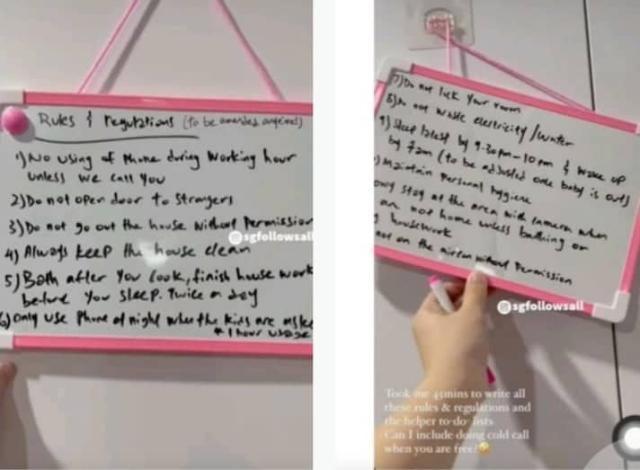 Rules & regulations (to be amended anytime)
1) No using of Phone during working hour
unless we call you
2) Do not open door to strangers
3) Do not go out the house without Permission
4) Always keep the house clean
5) Bath after you cook, finish house work
before you sleep. Twice a day
6) Only use Phone at night when the kids are
1 hour usage
@sgfollowsall
7) Do not lock your room
8) Do not waste electricity/water
9) Sleep latest by 9.30pm-10pm & wake up
by 7am (to be adjusted once baby is out)
Maintain Personal hygiene
only stay at the area with camera when
are not home unless bathing or
housework
not on the aircon without Permission
@sgfollowsall
Took me 45mins to write all
these rules & regulations and
the helper to-do lists
Can I include doing cold call
when you are free?